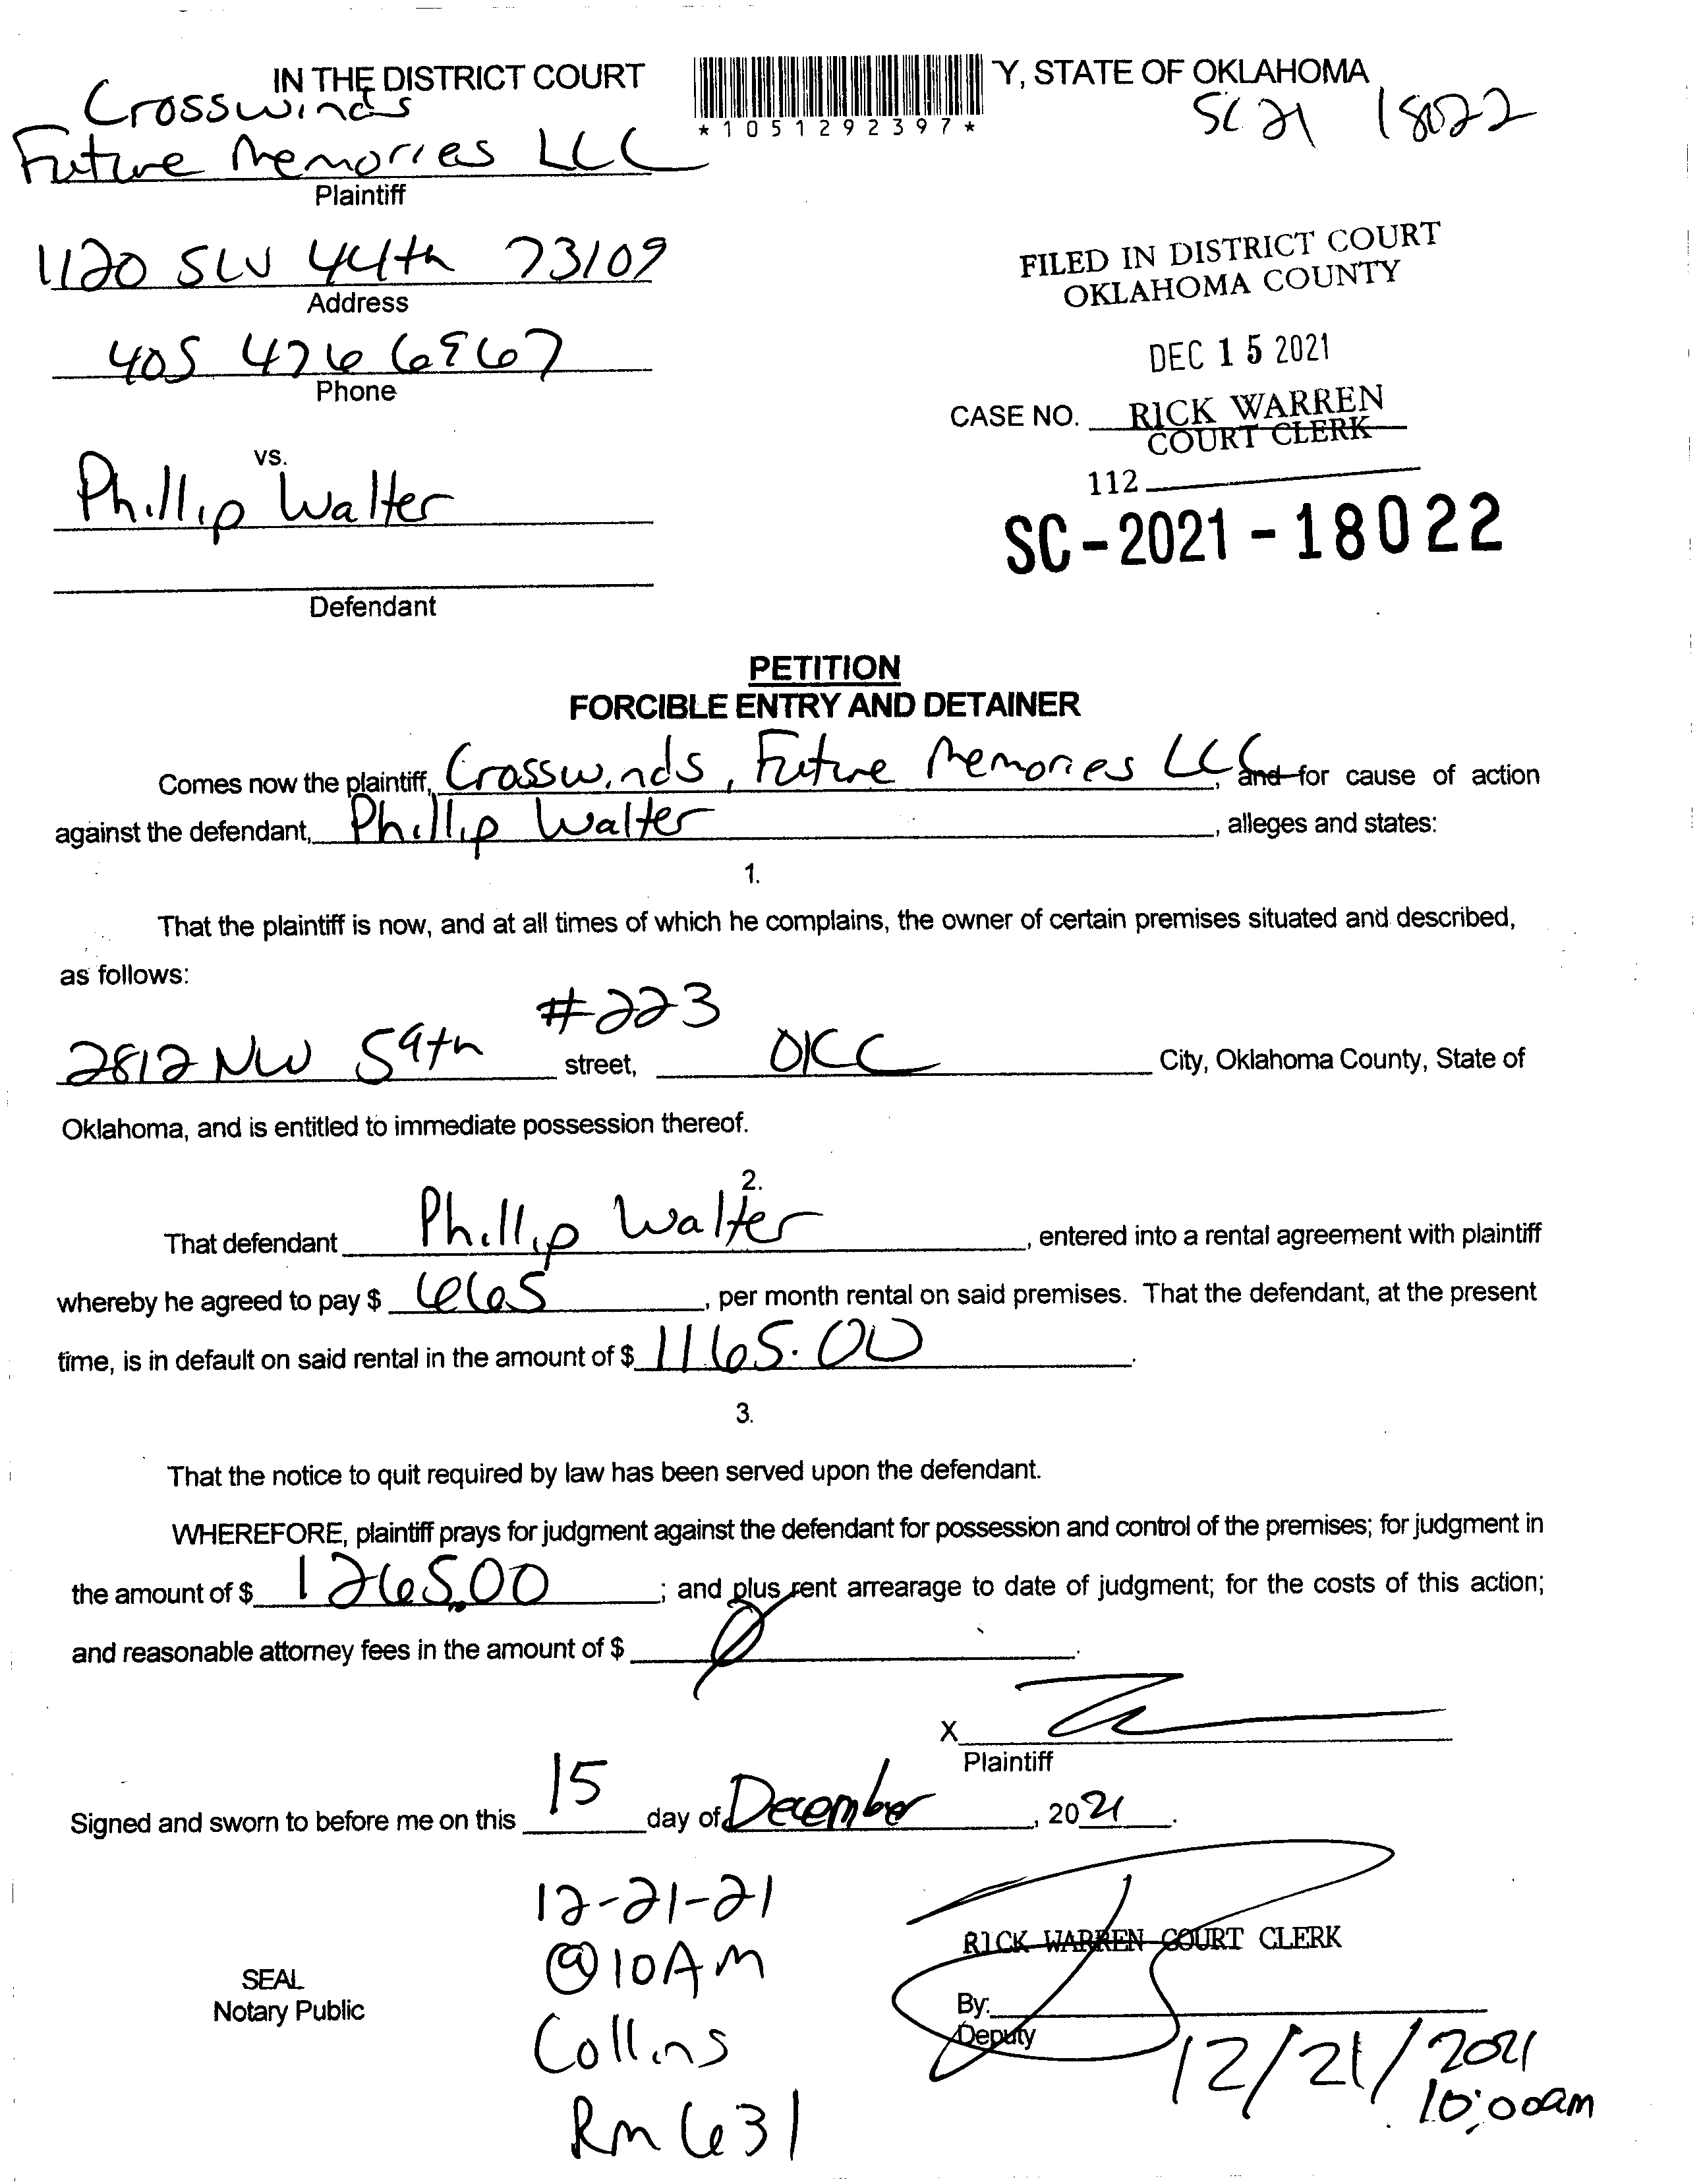 IN THE DISTRICT COURT Y, STATE OF OKLAHOMA
*1051292397*
SC 21 18022
Crosswinds
Future Memories LLC
Plaintiff
1120 SW 44th 73109
Address
FILED IN DISTRICT COURT
OKLAHOMA COUNTY
DEC 15 2021
405 476 6967
Phone
CASE NO. RICK WARREN
COURT CLERK
112
vs.
Phillip Walter
SC-2021-18022
Defendant
PETITION
FORCIBLE ENTRY AND DETAINER
Comes now the plaintiff, Crosswinds, Future Memories LLC, and for cause of action
against the defendant, Phillip Walter, alleges and states:
1.
That the plaintiff is now, and at all times of which he complains, the owner of certain premises situated and described,
as follows:
#223
2812 NW 59th street, OKC City, Oklahoma County, State of
Oklahoma, and is entitled to immediate possession thereof.
2.
That defendant Phillip Walter, entered into a rental agreement with plaintiff
whereby he agreed to pay $ 665, per month rental on said premises. That the defendant, at the present
time, is in default on said rental in the amount of $ 1165.00.
3.
That the notice to quit required by law has been served upon the defendant.
WHEREFORE, plaintiff prays for judgment against the defendant for possession and control of the premises; for judgment in
the amount of $ 1265.00; and plus rent arrearage to date of judgment; for the costs of this action;
and reasonable attorney fees in the amount of $ Ø.
X
Plaintiff
Signed and sworn to before me on this 15 day of December, 2021.
12-21-21
@10AM
Collins
Rm 631
SEAL
Notary Public
RICK WARREN COURT CLERK
By:
Deputy
12/21/2021
10:00am